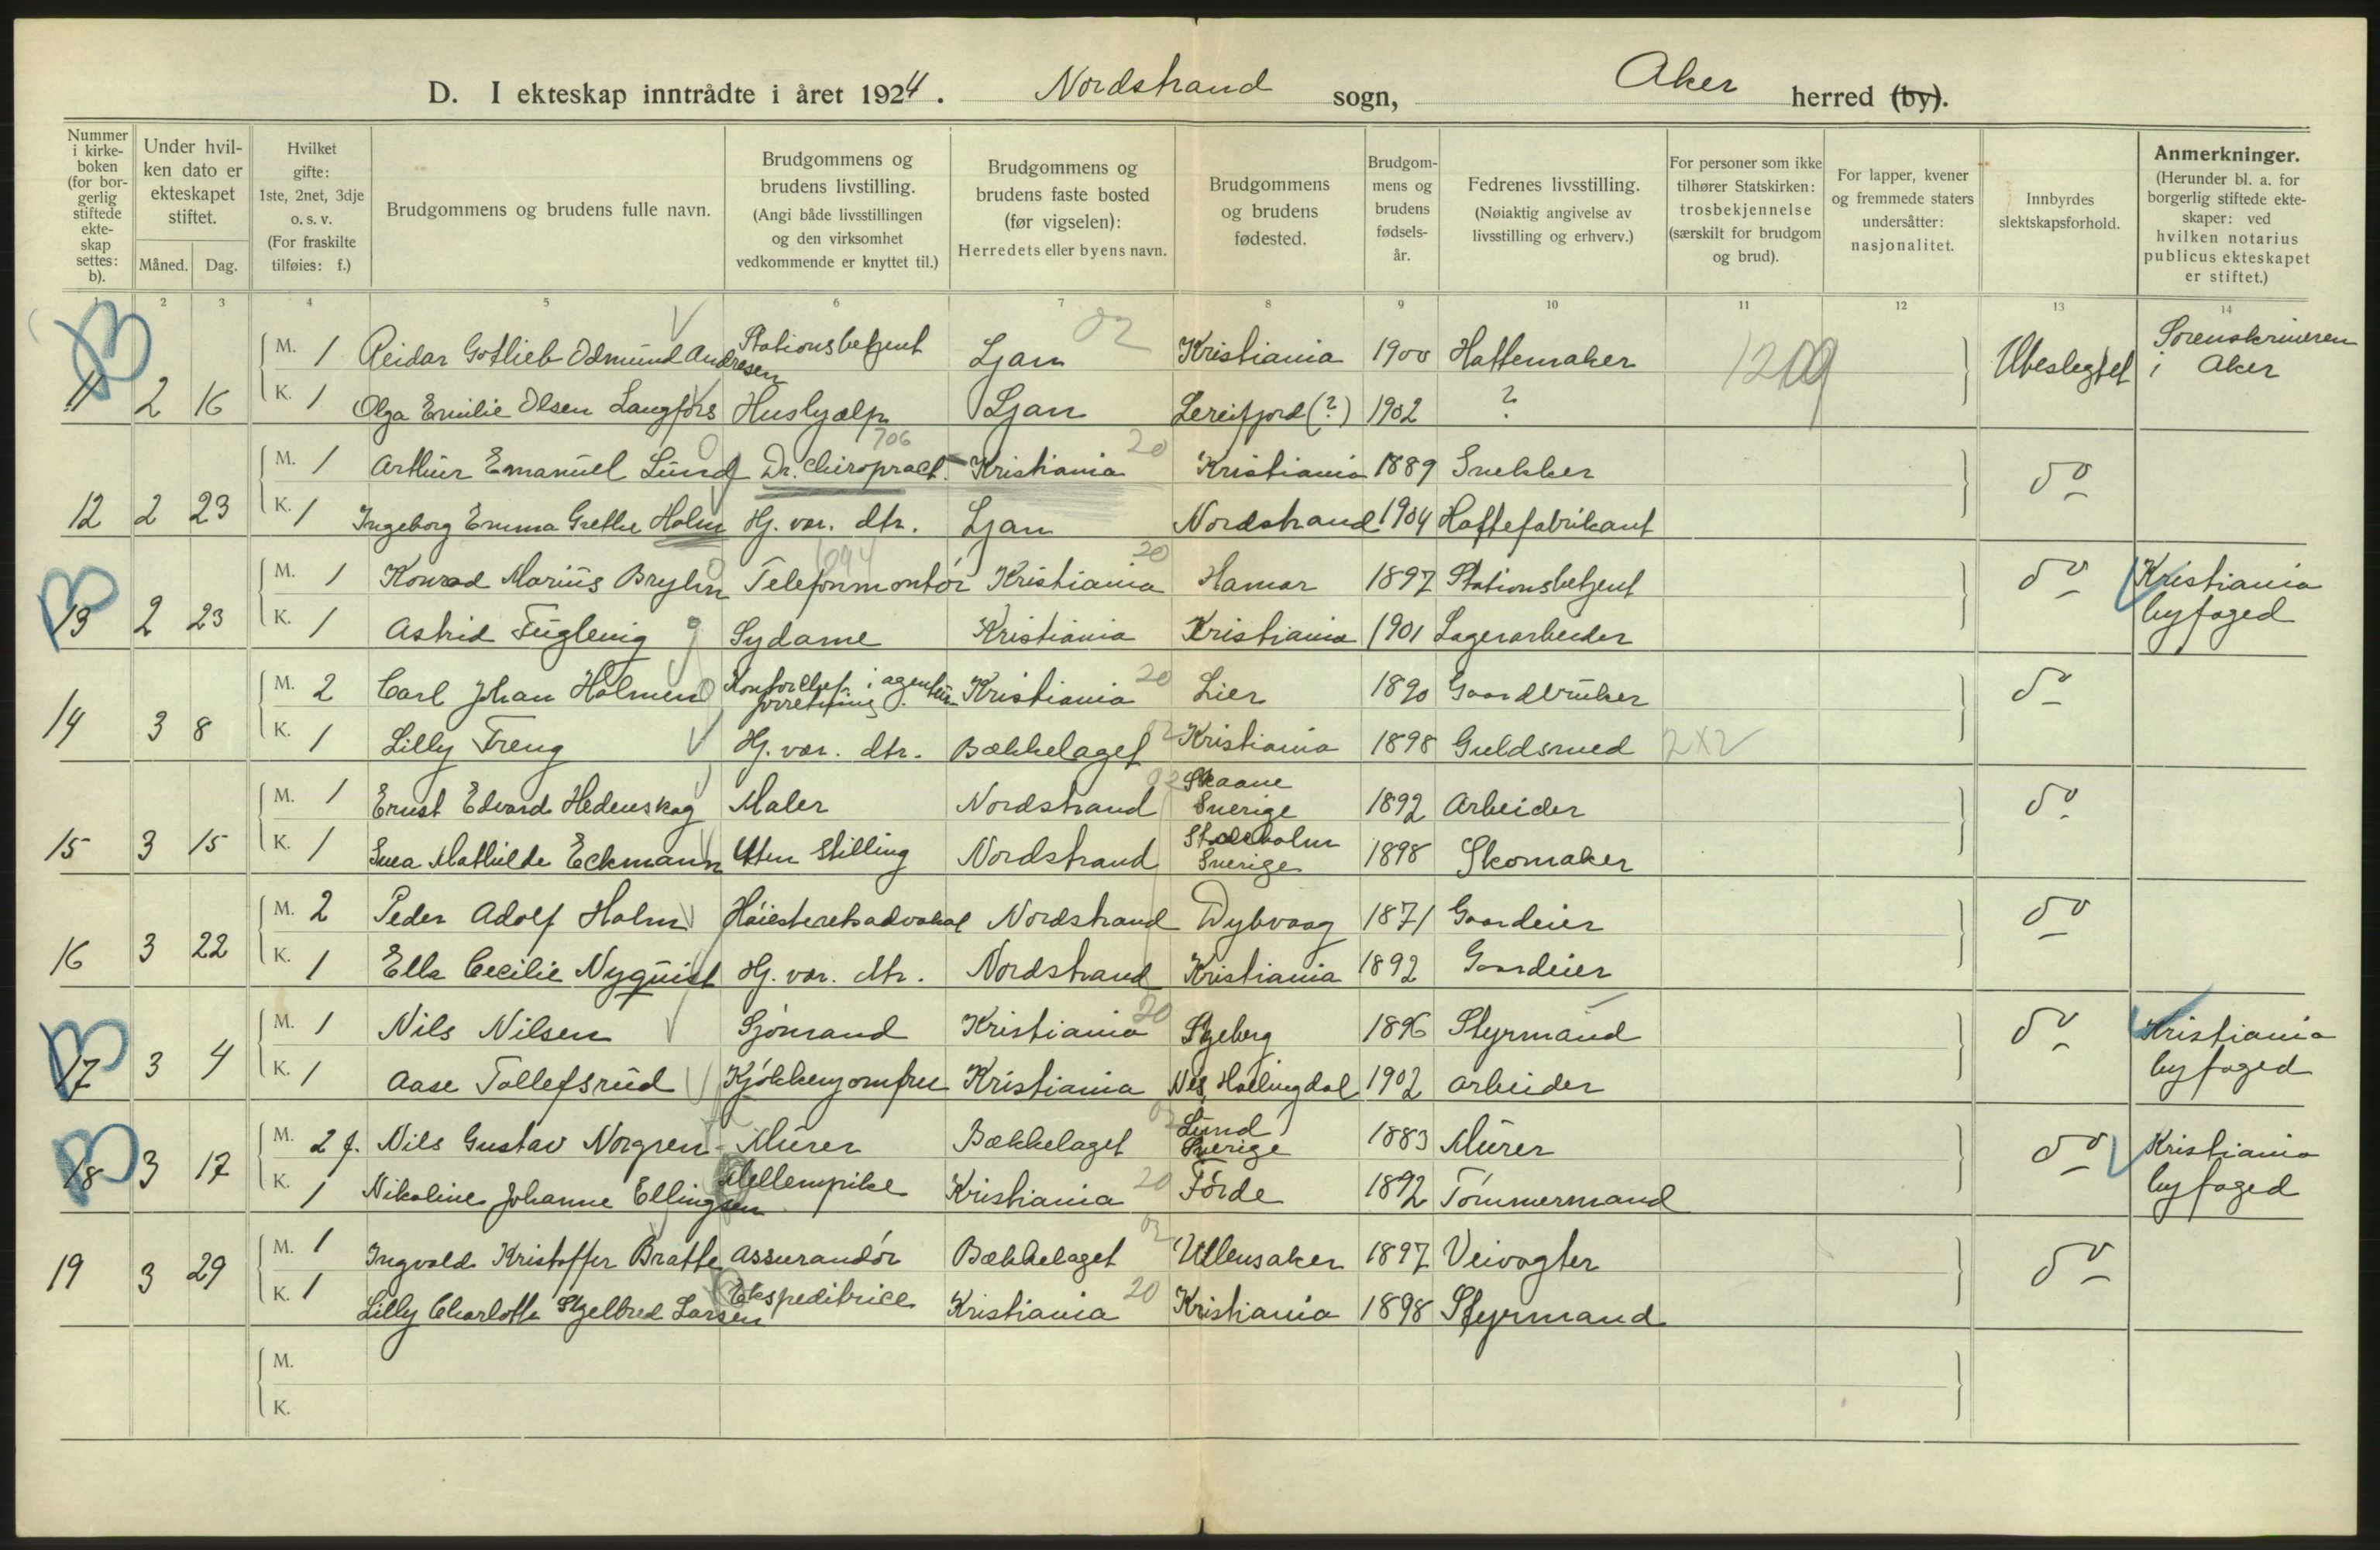 D. I ekteskap inntrådte i året 1924. Nordstrand sogn, Aker herred (by).
Nummer i kirke-boken (for bor-gerlig stiftede ekte-skap settes: b).
Under hvil-ken dato er ekteskapet stiftet.
Måned. Dag.
Hvilket gifte: 1ste, 2net, 3dje o. s. v. (For fraskilte tilføies: f.)
Brudgommens og brudens fulle navn.
Brudgommens og brudens livstilling. (Angi både livsstillingen og den virksomhet vedkommende er knyttet til.)
Brudgommens og brudens faste bosted (før vigselen): Herredets eller byens navn.
Brudgommens og brudens fødested.
Brudgom-mens og brudens fødsels-år.
Fedrenes livsstilling. (Nøiaktig angivelse av livsstilling og erhverv.)
For personer som ikke tilhører Statskirken: trosbekjennelse (særskilt for brudgom og brud).
For lapper, kvener og fremmede staters undersåtter: nasjonalitet.
Innbyrdes slektskapsforhold.
Anmerkninger. (Herunder bl. a. for borgerlig stiftede ekte-skaper: ved hvilken notarius publicus ekteskapet er stiftet.)
1 2 3 4 5 6 7 8 9 10 11 12 13 14
B 11 2 16 M. 1 Reidar Gotlieb Odmund Andresen Stationsbetjent Ljan 02 Kristiania 1900 Hattemaker 1209 Ubeslegtet Sorenskriveren i Aker
K. 1 Olga Emilie Olsen Langfors Hushjælp Ljan Lereifjord (?) 1902 ?
12 2 23 M. 1 Arthur Emanuel Lund Dr. Chiropract. 706 Kristiania 20 Kristiania 1889 Snekker do
K. 1 Ingeborg Emma Grethe Holm Hj. vær. dtr. Ljan Nordstrand 1904 Hattefabrikant
B 13 2 23 M. 1 Konrad Marius Brylin Telefonmontör 1094 Kristiania 20 Hamar 1897 Stationsbetjent do Kristiania byfoged
K. 1 Astrid Fuglevig Sydame Kristiania Kristiania 1901 Lagerarbeider
14 3 8 M. 2 Carl Johan Holmen Kontorchef i agentur forretning Kristiania 20 Lier 1890 Gaardbruker do
K. 1 Lilly Freng Hj. vær. dtr. Bækkelaget 02 Kristiania 1898 Guldsmed 2x2
15 3 15 M. 1 Ernst Edvard Hedenskog Maler Nordstrand 02 Skaane Sverige 1892 Arbeider do
K. 1 Svea Mathilde Eckmann Uten stilling Nordstrand Stockholm Sverige 1898 Skomaker
16 3 22 M. 2 Peder Adolf Holm Höiesteretsadvokat Nordstrand Dybvaag 1871 Gaardeier do
K. 1 Ella Cecilie Nyquist Hj. vær. dtr. Nordstrand Kristiania 1892 Gaardeier
B 17 3 4 M. 1 Nils Nilsen Sjömand Kristiania 20 Skjeberg 1896 Styrmand do Kristiania byfoged
K. 1 Aase Tollefsrud Kjökkenjomfru Kristiania Nes, Hallingdal 1902 Arbeider
B 18 3 17 M. 2 f. Nils Gustav Norgren Murer Bækkelaget 02 Lund Sverige 1883 Murer do Kristiania byfoged
K. 1 Nikoline Johanne Ellingsen Mellempike Kristiania 20 Förde 1892 Tömmermand
19 3 29 M. 1 Ingvald Kristoffer Bratte Assurandör Bækkelaget 02 Ullensaker 1897 Veivogter do
K. 1 Lilly Charlotte Skjelbred Larsen Ekspeditrice Kristiania 20 Kristiania 1898 Styrmand
M.
K.